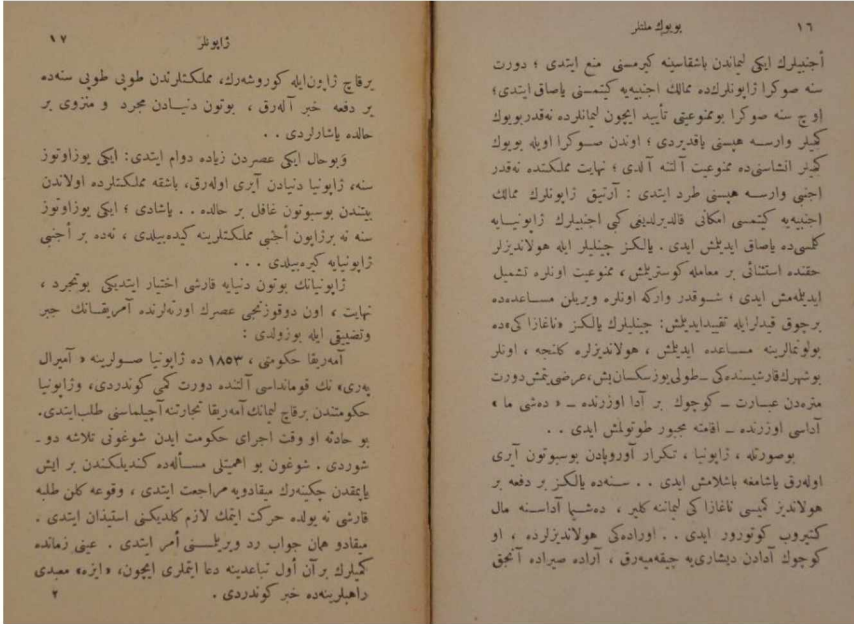 ١٦
بويوك ملتلر
أجنبيلرك ايكى ليماندن باشقاسينه كيرمسنى منع ايتدى ؛ دورت
سنه صوكرا ژاپونلرك‌ده ممالك اجنبيه‌يه كيتمسنى ياصاق ايتدى؛
اوچ سنه صوكرا بوممنوعيتى تأييد ايچون ليمانلرده نه‌قدربويوك
كميلر وارسه هپسنى ياقديردى ؛ اوندن صوكرا اويله بويوك
كميلر انشاسنى‌ده ممنوعيت آلتنه آلدى ؛ نهايت مملكتنده نه‌قدر
اجنبى وارسه هپسنى طرد ايتدى : آرتيق ژاپونلرك ممالك
اجنبيه‌يه كيتمسى امكانى قالديرلديغى كبى اجنبيلرك ژاپونيايه
كلمسى‌ده ياصاق ايديلمش ايدى . يالكز چينليلر ايله هولانديزلر
حقنده استثنائى بر معامله كوستريلمش ، ممنوعيت اونلره تشميل
ايديلمه‌مش ايدى ؛ شوقدر واركه اونلره ويريلن مساعده‌ده
برچوق قيدلرايله تقييدايديلمش: چينليلرك يالكز «ناغازاكى»ده
بولونمالرينه مساعده ايديلمش ، هولانديزلره كلنجه ، اونلر
بوشهرك‌قارشيسنده‌كى ـ طولى‌يوزسكسان‌بش، عرضى‌يتمش‌دورت
متره‌دن عبارت ـ كوچوك بر آدا اوزرنده ـ « ده‌شى ما »
آداسى اوزرنده ـ اقامته مجبور طوتولمش ايدى . .
بوصورتله ، ژاپونيا ، تكرار آوروپادن بوسبوتون آيرى
اوله‌رق ياشامغه باشلامش ايدى . . سنه‌ده يالكز بر دفعه بر
هولانديز كميسى ناغازاكى ليماننه كلير ، ده‌شيما آداسنه مال
كتيروب كوتورور ايدى . . اوراده‌كى هولانديزلرده ، او
كوچوك آدادن ديشارى‌يه چيقه‌ميه‌رق ، آراده صيراده آنجق
١٧
ژاپونلر
برقاچ ژاپون‌ايله كوروشه‌رك، مملكتلرندن طوپى طوپى سنه‌ده
بر دفعه خبر آله‌رق ، بوتون دنيادن مجرد و منزوى بر
حالده ياشارلردى . .
وبوحال ايكى عصردن زياده دوام ايتدى: ايكى يوزاوتوز
سنه، ژاپونيا دنيادن آيرى اوله‌رق، باشقه مملكتلرده اولاندن
بيتندن بوسبوتون غافل بر حالده . . ياشادى ؛ ايكى يوزاوتوز
سنه نه برژاپون أجنبى مملكتلرينه كيده‌بيلدى ، نه‌ده بر أجنبى
ژاپونيايه كيره‌بيلدى . . .
ژاپونيانك بوتون دنيايه قارشى اختيار ايتديكى بوتجرد ،
نهايت ، اون دوقوزنجى عصرك اورته‌لرنده آمريقانك جبر
وتضييقى ايله بوزولدى :
آمه‌ريقا حكومتى ، ١٨٥٣ ده ژاپونيا صولرينه « آميرال
په‌رى» نك قومانداسى آلتنده دورت كمى كوندردى، وژاپونيا
حكومتندن برقاچ ليمانك آمه‌ريقا تجارتنه آچيلماسنى طلب‌ايتدى.
بو حادثه او وقت اجراى حكومت ايدن شوغونى تلاشه دو ـ
شوردى . شوغون بو اهميتلى مسأله‌ده كنديلكندن بر ايش
ياپمقدن چكينه‌رك ميقادويه مراجعت ايتدى ، وقوعه كلن طلبه
قارشى نه يولده حركت ايتمك لازم كلديكنى استيذان ايتدى .
ميقادو همان جواب رد ويريلمسنى أمر ايتدى . عينى زمانده
كميلرك برآن أول تباعدينه دعا ايتملرى ايچون، « ايزه» معبدى
راهبلرينه‌ده خبر كوندردى .
٢